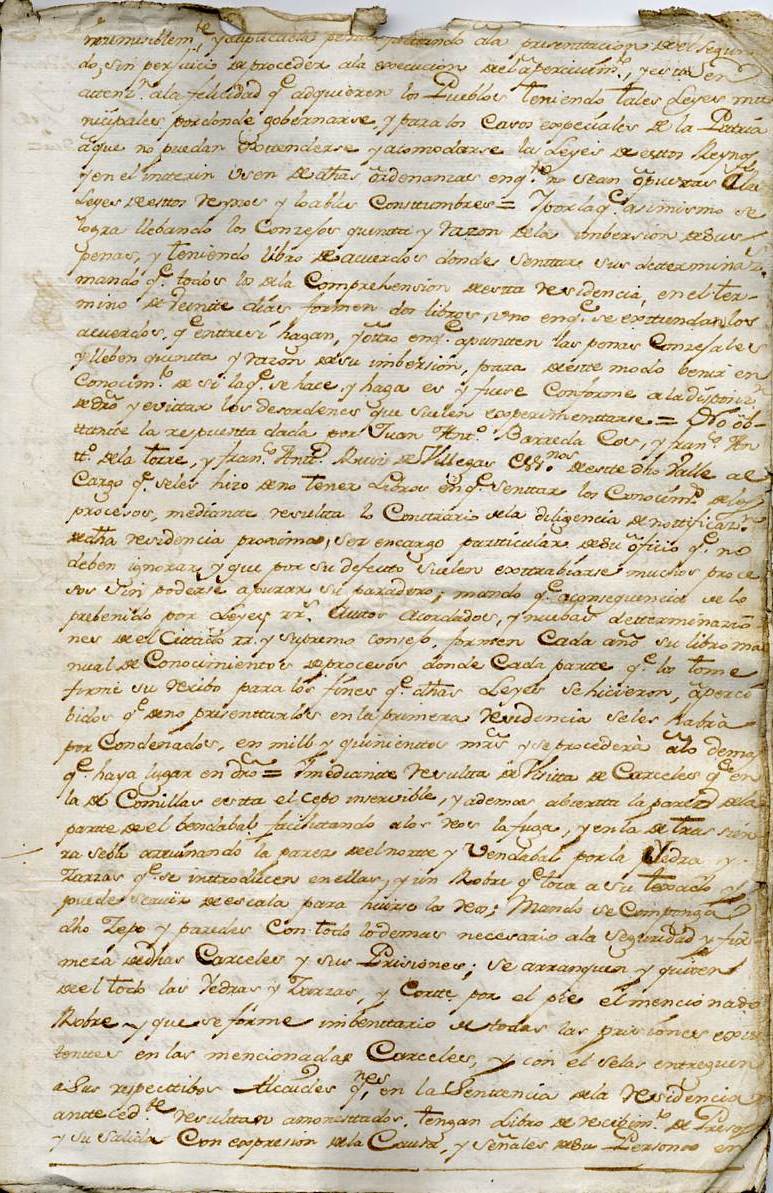 y aplicada pena, prozediendo a la presenttacion de el segun
do, sin perjuicio de proceder a la execucion de el apercivim.to, y esto en
attenz.n a la felicidad q.e adquieren los Pueblos teniendo tales Leyes mu
nicipales por donde gobernarse, y para los Casos expeciales de la Patria
a que no puedan extenderse y acomodarse las Leyes de esttos Reynos
y en el interin usen de dhas ordenanzas en q.to no sean opuestas a las
Leyes de esttos Reynos y loables Consttumbres = Y por la q.e asimismo se
logra llebando los Conzejos quentta y razon de la imbersion de sus
penas, y teniendo libro de acuerdos donde senttar sus determinaz.s
mando q.e todos los de la Comprehension de estta residencia, en el ter-
mino de veinte dias formen dos libros, uno en q.e se extiendan los
acuerdos q.e entre sí hagan, y otro en q.e apuntten las penas Conzejales
y lleben quentta y razon de su imbersion, para de este modo benir en
Conocim.to de si lo q.e se hace, y haga es y fuese Conforme a la disposiz.n
de dro y evittar los desordenes que suelen experimenttarse = No ob-
ttante la respuestta dada por Juan Ant.o Barreda Cos, y fran.co An
tt.o de la torre, y fran.co Antt.o Ruiz de Villegas Ess.nos de este dho Valle al
Cargo q.e se les hizo de no tener Libros en q.e senttar los Conocim.tos de los
procesos, mediantte resultta lo Conttrario de la diligencia de nottificaz.n
de dha residencia proxima, ser encargo partticular de su oficio q.e no
deben ignorar, y que por su defectto suelen exttrabiarse muchos proce
sos sin poderse apurar su paradero; mando q.e a consequencia de lo
prebenido por Leyes rr.s Auttos acordados, y nuebas determinazio-
nes de el Cittado rr. y supremo consejo, formen Cada año su libro ma
nual de Conocimientos de procesos donde Cada partte q.e los tome
firme su recibo para los fines q.e dhas Leyes se hicieron, aperci
bidos q.e de no presenttarlos en la primera residencia se les habrá
por Condenados, en mill y quinientos mrs y se procederá a lo demas
q.e haya lugar en dro = Y mediantte resultta de Visitta de Carceles q.e en
la de Comillas estta el cepo inservible, y ademas abiertta la pared de la
partte de el bendabal facilitando a los reos la fuga, y en la de tras sier
ra se ba arruinando la pared del nortte y Vendabal por la Yedra y
Zarzas q.e se inttroducen en ellas, y un Robre q.e toca a su texado y
puede servir de escala para huirse los reos; Mando se Componga
dho Zepo y paredes Con todo lo demas necesario a la seguridad y fir
meza de dhas Carceles y sus Prisiones; se arranquen y quiten
de el todo las Yedras y Zarzas, y Cortte por el pie el mencionado
Robre y que se forme imbenttario de todas las prisiones exis
tenttes en las mencionadas Carceles, y con él se las entreguen
a sus respecttibos Alcaides q.nes en la Senttencia de la residencia
anteced.te resulttan amonesttados, tengan Libro de recibim.to de Presos
y su salida Con expresion de la Causa, y señales de su Persona en